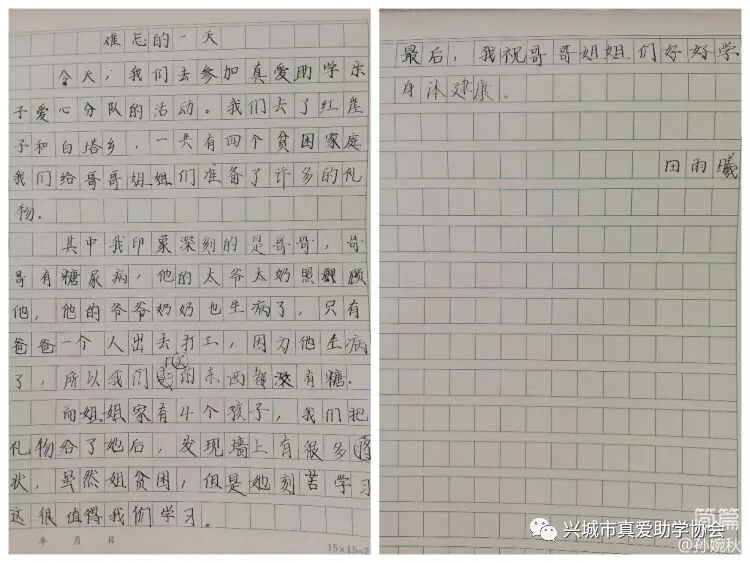 难忘的一天
今天，我们去参加真爱助学乐
子爱心分队的活动。我们去了红崖
子和白塔乡，一共有四个贫困家庭
我们给哥哥姐姐们准备了许多的礼
物。
其中我印象深刻的是哥哥，哥
哥有糖尿病，他的太爷太奶照顾
他，他的爷爷奶奶也生病了，只有
爸爸一个人出去打工，因为他生病
了，所以我们送的东西都没有糖.
而姐姐家有4个孩子，我们把
礼物给了她后，发现墙上有很多奖
状，虽然姐贫困，但是她刻苦学习
这很值得我们学习。
年 月 日
15×15=2
最后，我祝哥哥姐姐们好好学
身体建康。
田雨曦
兴城市真爱助学协会
简篇
@孙婉秋